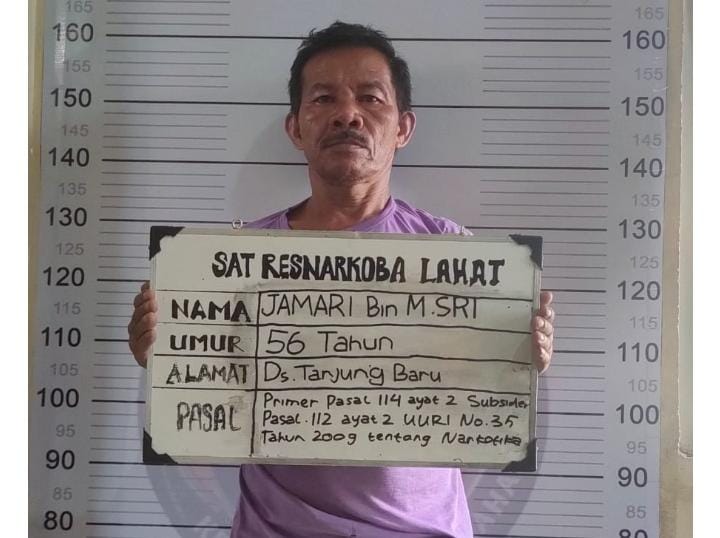 SAT RESNARKOBA LAHAT
NAMA JAMARI Bin M.SRI
UMUR 56 Tahun
ALAMAT Ds.Tanjung Baru
PASAL Primer Pasal 114 ayat 2 Subsider
Pasal.112 ayat 2 UURI No.35
Tahun 2009 tentang Narkotika
165 165
160 160
155 155
150 150
145 145
140 140
135 135
130 130
125 125
120 120
115 115
110 110
105 105
100 100
95 95
90 90
85 85
80 80